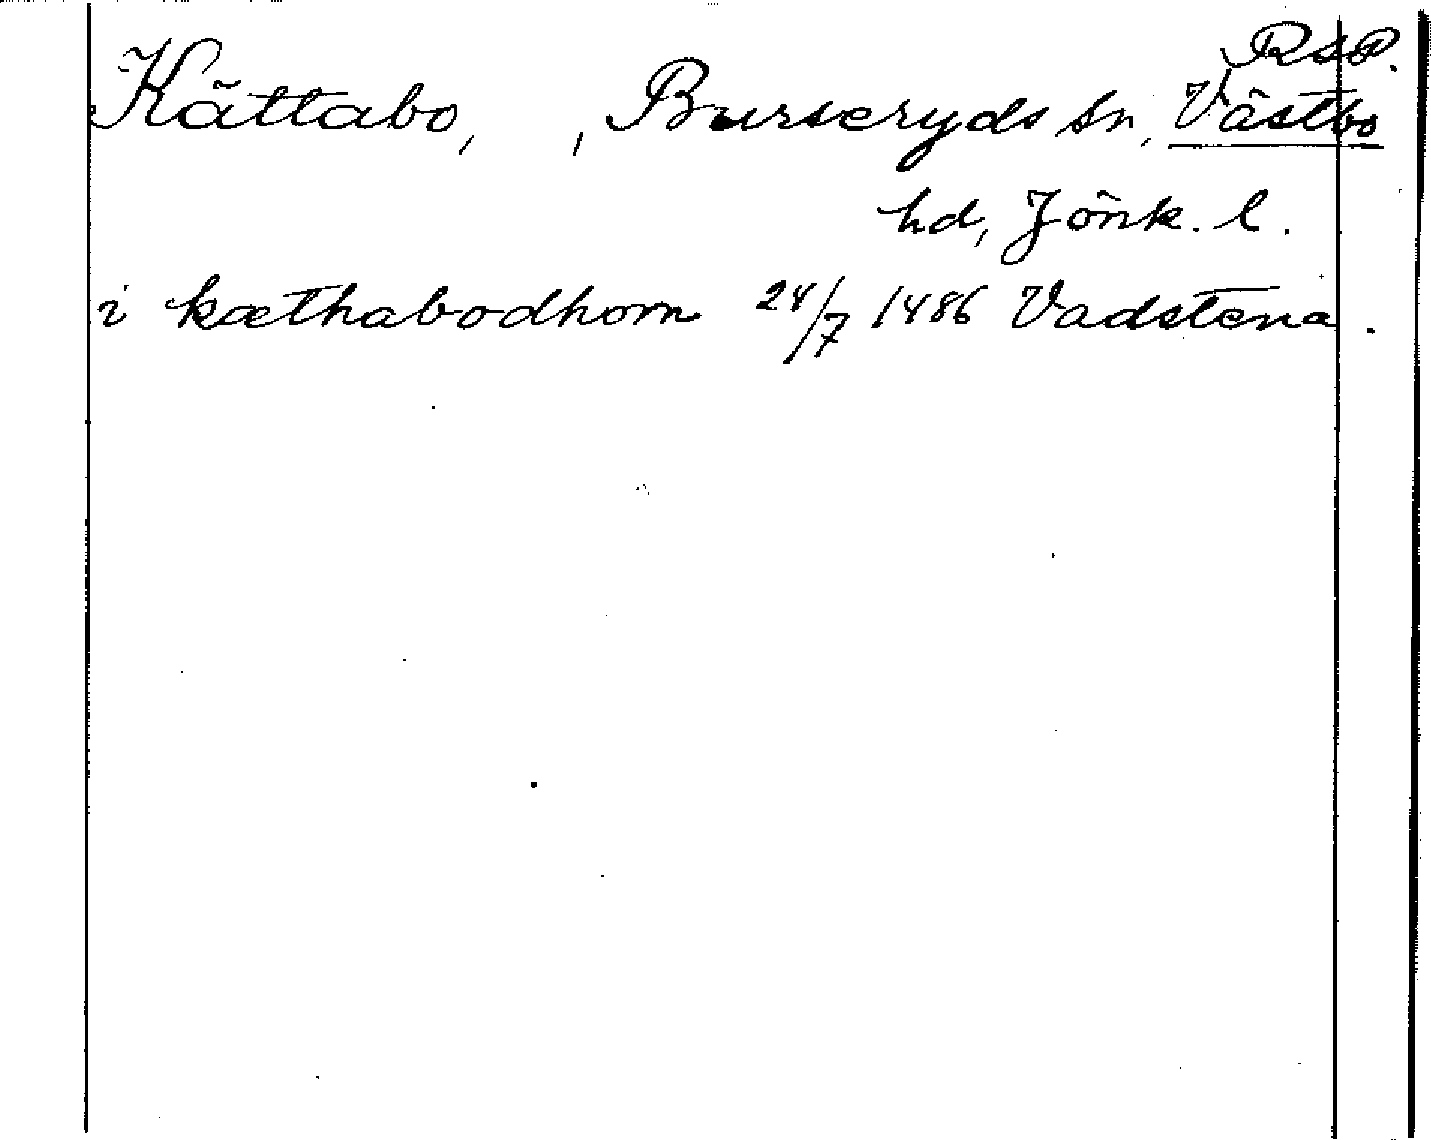 RSP.
Kättabo, , Burseryds sn, Västbo
hd, Jönk. l.
i kæthabodhom 24/7 1486 Vadstena.